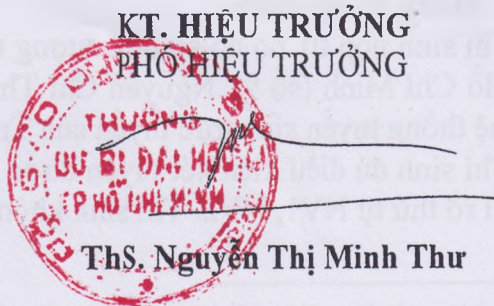 KT. HIỆU TRƯỞNG
PHÓ HIỆU TRƯỞNG
DỰ BỊ ĐẠI HỌC
TP HỒ CHÍ MINH
ThS. Nguyễn Thị Minh Thư